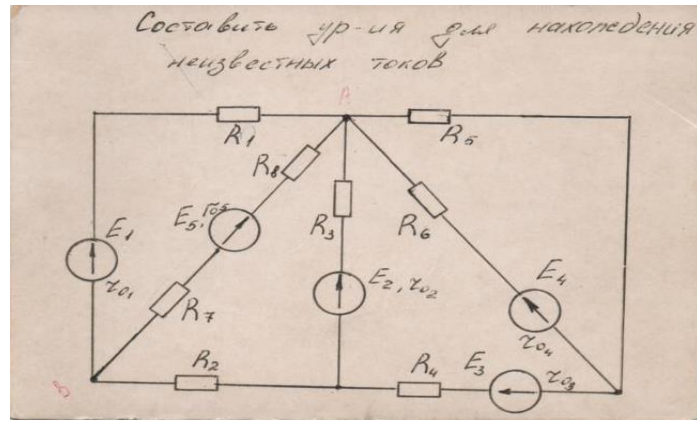 Составить ур-ия для нахождения
неизвестных токов
A
R1
R5
R8
E5, r05
R3
R6
E1
r01
E2, r02
E4
R7
r04
R2
R4
E3
r03
B